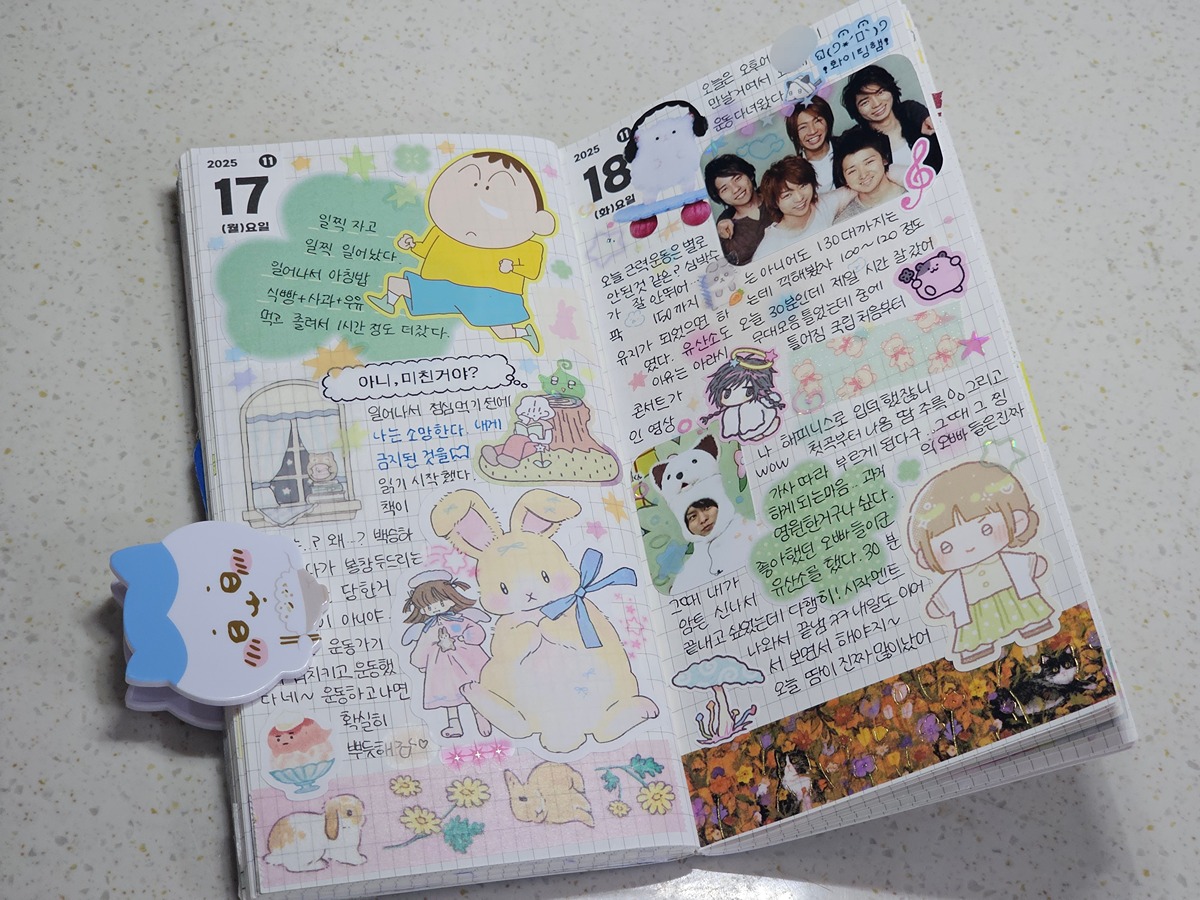 2025 11
17
(월)요일
일찍 자고
일찍 일어났다.
일어나서 아침밥
식빵+사과+우유
먹고 졸려서 1시간 정도 더잤다.
아니, 미친거야?
일어나서 점심먹기 전에
나는 소망한다. 내게
금지된 것을
읽기 시작했다.
책이
? 왜..? 백승하
다가 봉창두드리는
당한거
아니야
운동가기
시키고, 운동했
다네~ 운동하고나면
확실히
뿌듯해
2025 11
18
(화)요일
오늘은 오후에
만날거여서
운동다녀왔다
화이팅햄!
오늘 근력운동은 별로
안된것 같은? 심박수
가 잘 안뛰어
팍 150까지
유지가 되었으면 하
였다. 유산소도
이유는 아라시
콘서트가
인 영상
는 아니어도 130대까지는
는데 끽해봤자 100~120 정도
오늘 30분인데 제일 시간 잘 갔어
무대모음 틀었는데 중에
틀어짐 국립 처음부터
나 해피니스로 입덕했잖니
wow 첫곡부터 나옴 땀 주륵 ㅇㅇ 그리고
가사 따라 부르게 된다구... 그때 그 찡
하게 되는마음.. 과거의 오빠들은 진짜
영원한거구나 싶다.
좋아했던 오빠들이군
유산소를 했다. 30분
그때 내가
암튼 신나서
끝내고 싶었는데 다행히! 시작멘트
나와서 끝냄 ㅋㅋ 내일도 이어
서 보면서 해야지~
오늘 땀이 진짜 많이났어